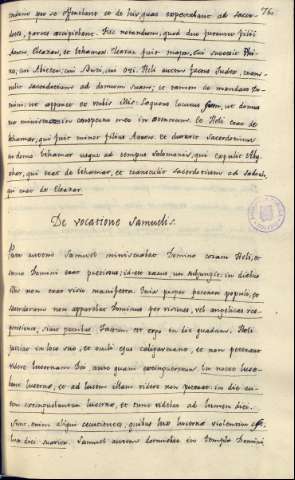 76.
dotem pro se offerebant et de his quae expendebant ad sacer-
dotes, partes accipiebant. Hic notandum, quod duo fuerunt filii
Aaron, Eleazar, et Ithamar. Eleazar fuit major, cui successit Phi-
nees, cui Abiezer, cui Bocci, cui Ozi. Heli autem factus Judex, trans-
tulit sacerdotium ad domum suam, et tamen de mandato Do-
mini: ut apparet ex verbis illis: Loquens locutus sum, ut domus
tua ministraret in conspectu meo in aeternum. Et Heli erat de
Ithamar, qui fuit minor filius Aaron. et duravit sacerdotium
in domo Ithamar usque ad tempus Salomonis, qui expulit Abya-
thar, qui erat de Ithamar, et transtulit sacerdotium ad Sadoch,
qui erat de Eleazar.
De vocatione Samuelis.
Puer autem Samuel ministrabat Domino coram Heli, et
sermo Domini erat preciosus; id est rarus, in diebus
illis non erat visio manifesta. Quia propter peccata populi, et
sacerdotum non apparebat Dominus per visiones, vel angelicas
Heli
jacebat in loco suo, et oculi ejus caligaverant, et non poterat
videre lucernam Dei antequam extingueretur. In nocte luce-
bant lucernae, et ad lucem illam videre non poterat. in die au-
tem extinguebantur lucernae, et tunc videbat ad lumen diei.
Sunt enim aliqui quibus lux lucernae violentior est,
lux diei suavior. Samuel autem dormiebat in templo Domini